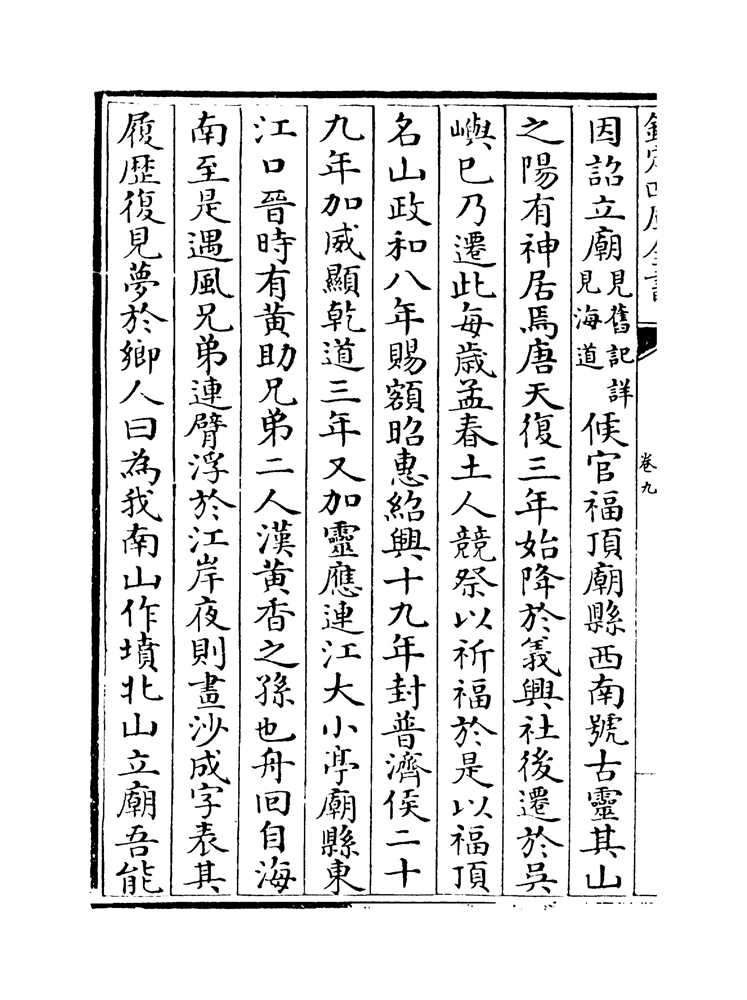 欽定四庫全書
卷九
因詔立廟見舊記詳見海道候官福頂廟縣西南號古靈其山
之陽有神居焉唐天復三年始降於義興社後遷於吳
嶼巳乃遷此每歲孟春土人競祭以祈福於是以福頂
名山政和八年賜額昭惠紹興十九年封普濟侯二十
九年加威顯乾道三年又加靈應連江大小亭廟縣東
江口晉時有黃助兄弟二人漢黃香之孫也舟回自海
南至是遇風兄弟連臂浮於江岸夜則畫沙成字表其
履歷復見夢於鄉人曰為我南山作墳北山立廟吾能